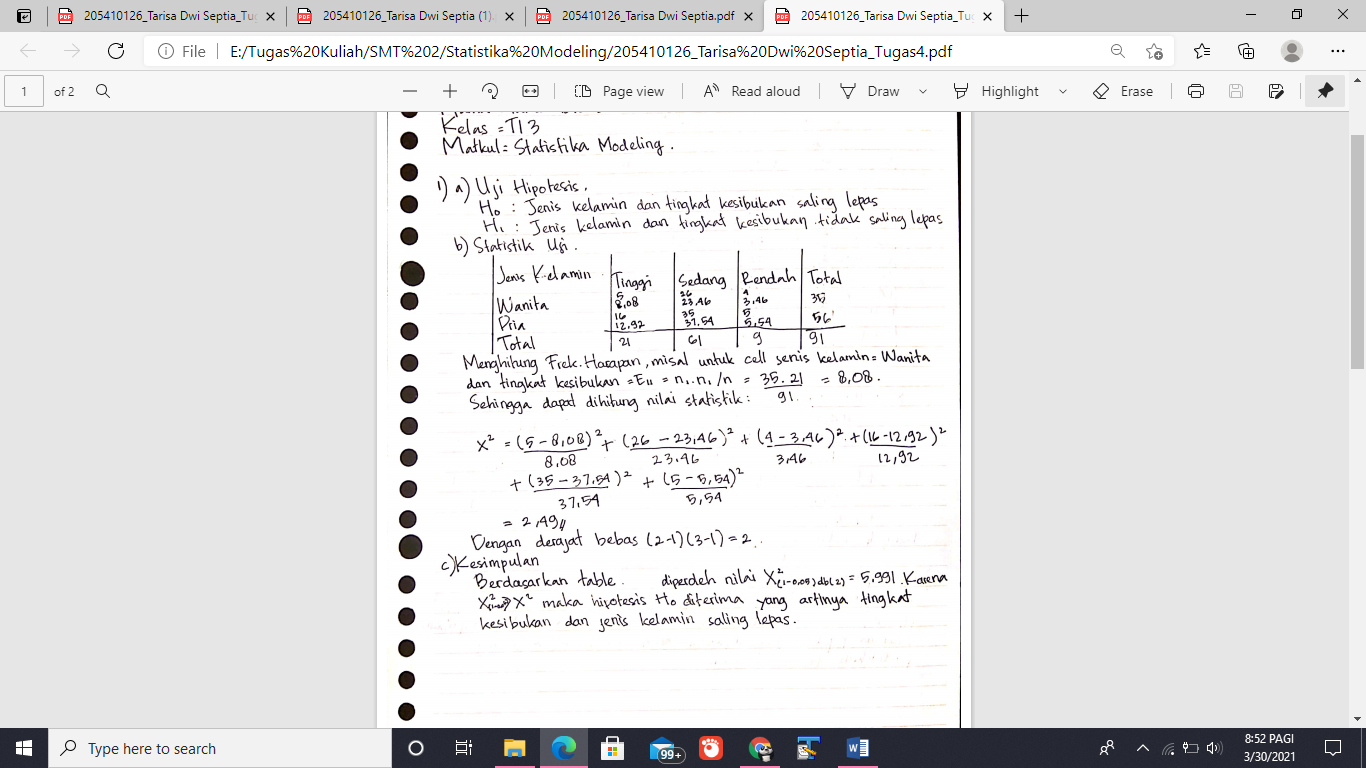 205410126_Tarisa Dwi Septia_Tug
205410126_Tarisa Dwi Septia (1).
205410126_Tarisa Dwi Septia.pdf
205410126_Tarisa Dwi Septia_Tug
File
E:/Tugas%20Kuliah/SMT%202/Statistika%20Modeling/205410126_Tarisa%20Dwi%20Septia_Tugas4.pdf
1 of 2
Page view
Read aloud
Draw
Highlight
Erase
Kelas = TI 3
Matkul = Statistika Modeling.
1) a) Uji Hipotesis.
H0 : Jenis kelamin dan tingkat kesibukan saling lepas
H1 : Jenis kelamin dan tingkat kesibukan tidak saling lepas
b) Statistik Uji.
Jenis Kelamin Tinggi Sedang Rendah Total
5 26 4
Wanita 8,08 23,46 3,46 35
16 35 5
Pria 12,92 37,54 5,54 56
Total 21 61 9 91
Menghitung Frek. Harapan, misal untuk cell jenis kelamin = Wanita
dan tingkat kesibukan = E11 = n1.n1/n = 35.21/91 = 8,08.
Sehingga dapat dihitung nilai statistik:
X² = (5-8,08)²/8,08 + (26-23,46)²/23,46 + (4-3,46)²/3,46 + (16-12,92)²/12,92
+ (35-37,54)²/37,54 + (5-5,54)²/5,54
= 2,49
Dengan derajat bebas (2-1)(3-1) = 2.
c) Kesimpulan
Berdasarkan table. diperoleh nilai X²(1-0,05)db(2) = 5,991. Karena
X² > X² maka hipotesis H0 diterima yang artinya tingkat
kesibukan dan jenis kelamin saling lepas.
Type here to search
99+
8:52 PAGI
3/30/2021